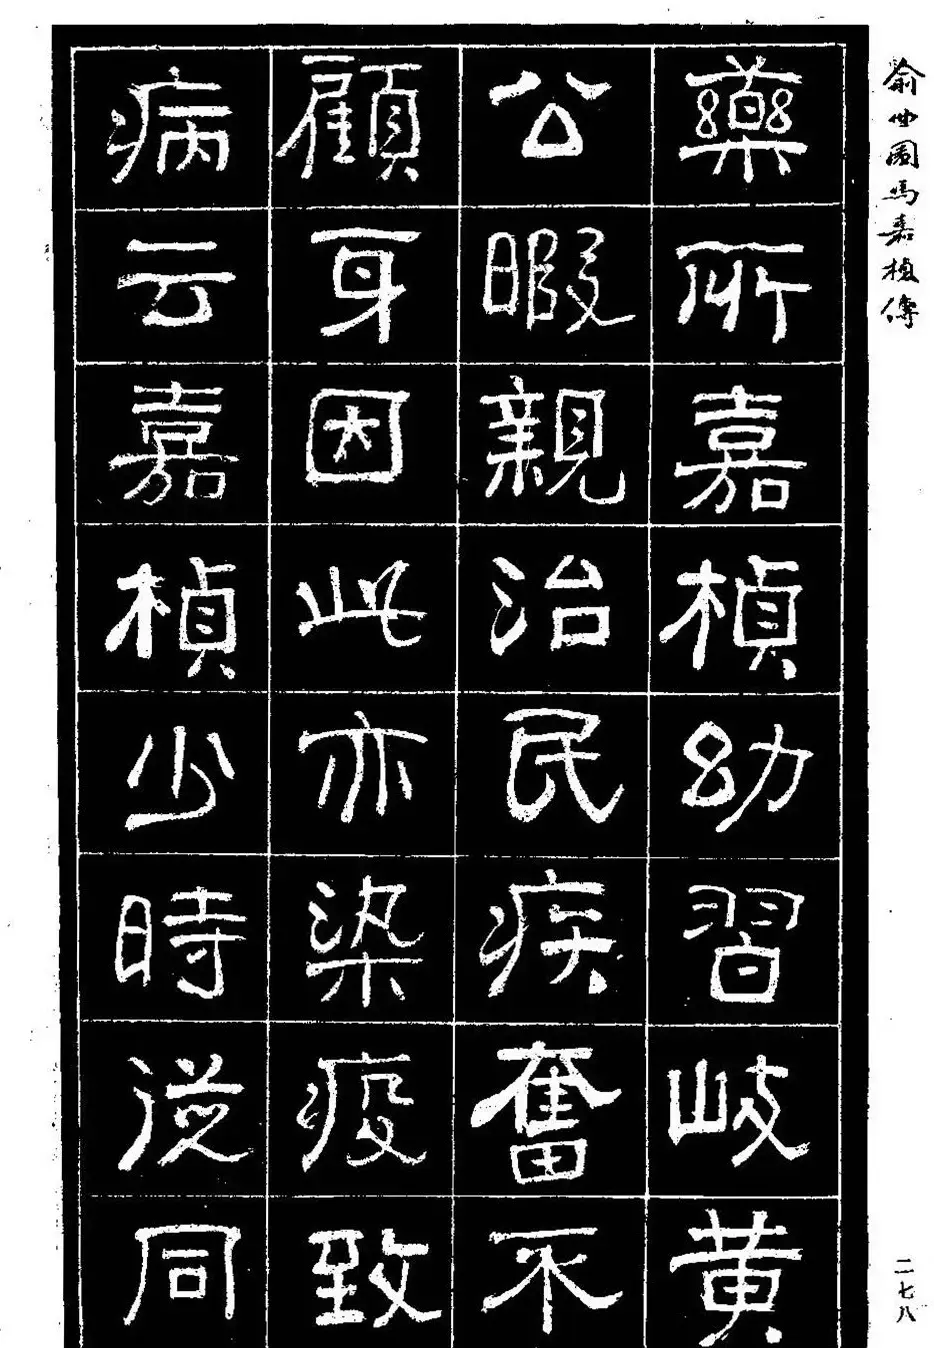 俞曲園馮嘉楨傳
藥所嘉楨幼習岐黃
公暇親治民疾奮不
顧身因此亦染疫致
病云嘉楨少時從同
二七八